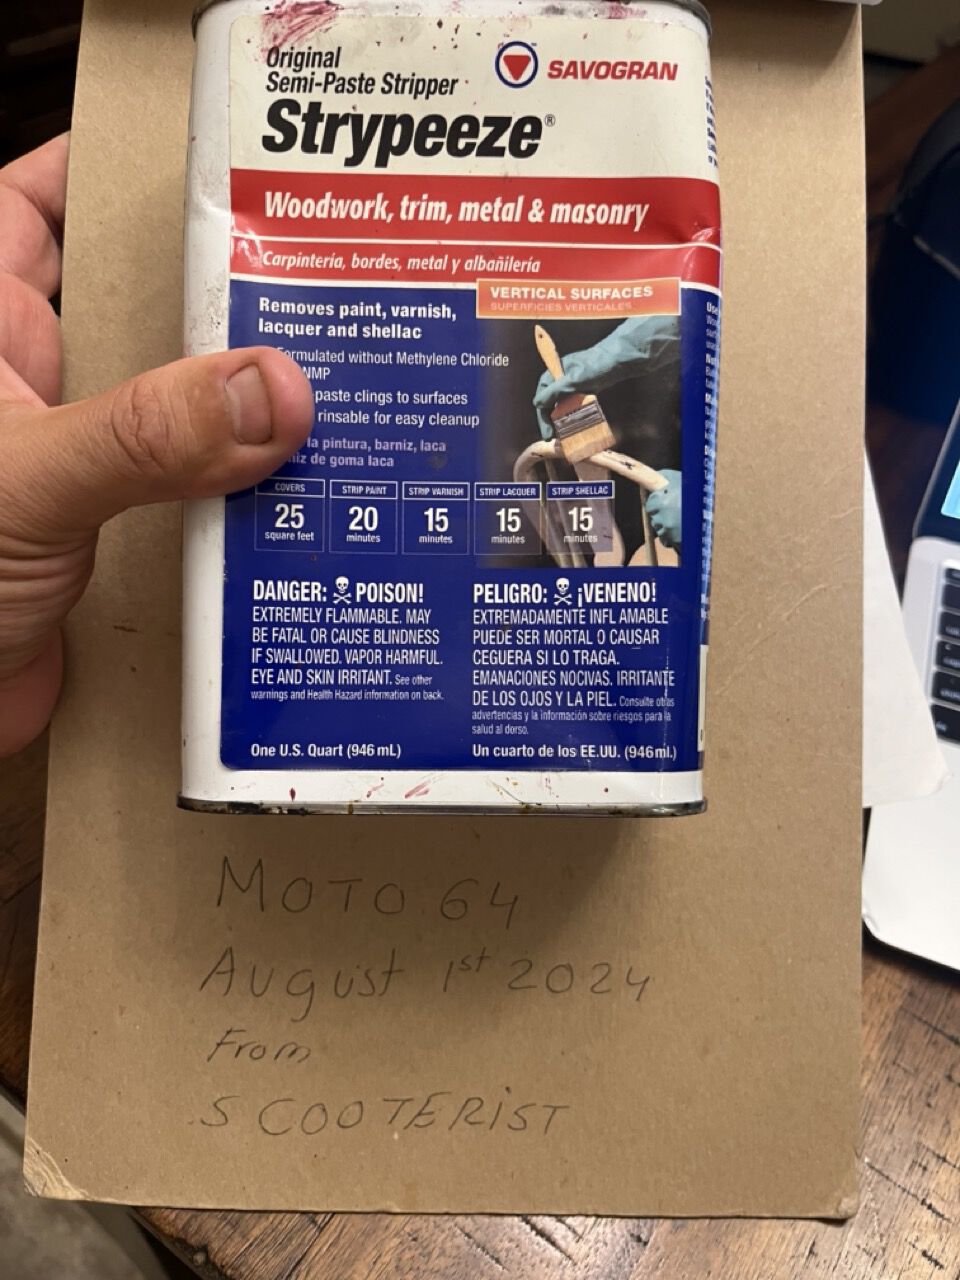 Original
Semi-Paste Stripper
SAVOGRAN
Strypeeze®
Woodwork, trim, metal & masonry
Carpintería, bordes, metal y albañilería
VERTICAL SURFACES
SUPERFICIES VERTICALES
Removes paint, varnish,
lacquer and shellac
Formulated without Methylene Chloride
NMP
paste clings to surfaces
rinsable for easy cleanup
la pintura, barniz, laca
de goma laca
COVERS
25
square feet
STRIP PAINT
20
minutes
STRIP VARNISH
15
minutes
STRIP LACQUER
15
minutes
STRIP SHELLAC
15
minutes
DANGER: POISON!
EXTREMELY FLAMMABLE. MAY
BE FATAL OR CAUSE BLINDNESS
IF SWALLOWED. VAPOR HARMFUL.
EYE AND SKIN IRRITANT. See other
warnings and Health Hazard information on back.
One U.S. Quart (946 mL)
PELIGRO: ¡VENENO!
EXTREMADAMENTE INFLAMABLE
PUEDE SER MORTAL O CAUSAR
CEGUERA SI LO TRAGA.
EMANACIONES NOCIVAS. IRRITANTE
DE LOS OJOS Y LA PIEL. Consulte otras
advertencias y la información sobre riesgos para la
salud al dorso.
Un cuarto de los EE.UU. (946 mL)
MOTO 64
August 1st 2024
From
SCOOTERiST